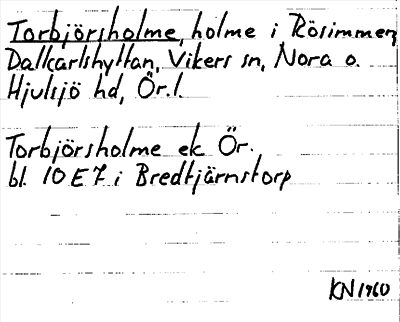 Torbjörsholme, holme i Rösimmen
Dalkarlshyttan, Vikers sn, Nora o.
Hjulsjö hd, Ör.l.
Torbjörsholme ek Ör.
bl. 10 E 7 i Bredtjärnstorp
KN 1960